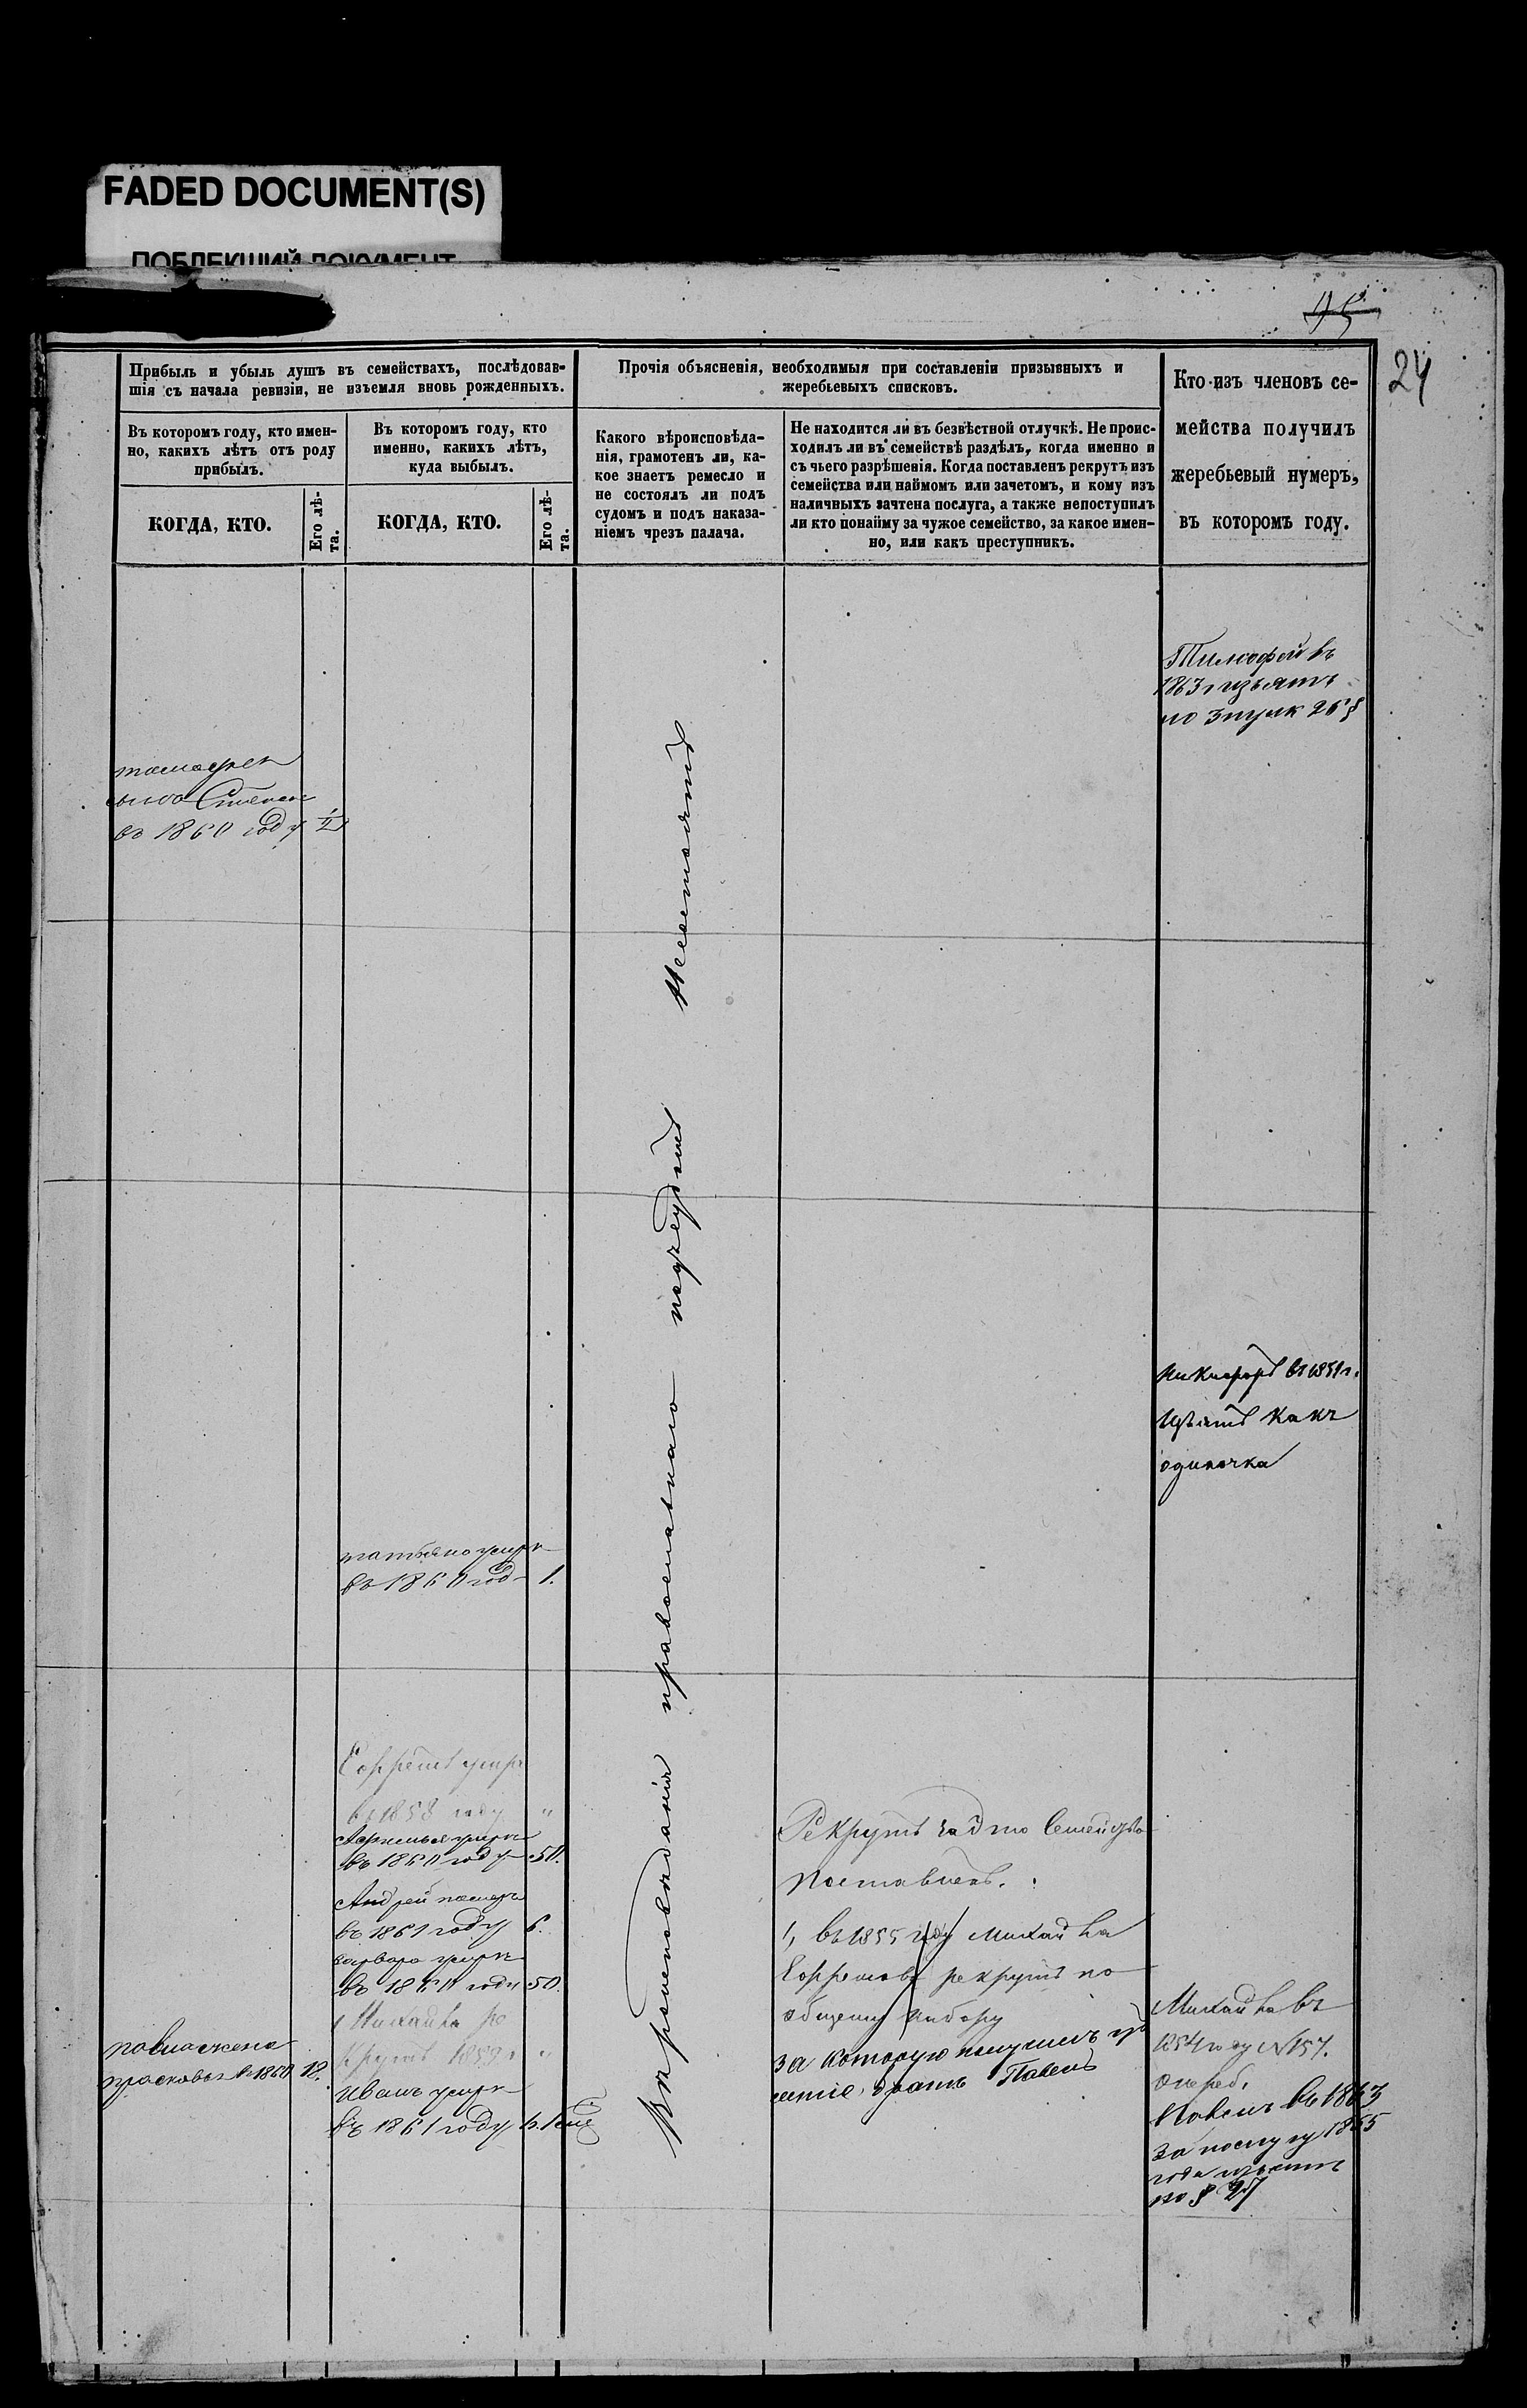 FADED DOCUMENT(S)
ПОБЛЕКШИЙ ДОКУМЕНТ
95
24
Прибыль и убыль душъ въ семействахъ, послѣдовав-
шія съ начала ревизіи, не изъемля вновь рожденныхъ.
Въ которомъ году, кто имен-
но, какихъ лѣтъ отъ роду
прибылъ.
КОГДА, КТО.
Его лѣ-
та.
Въ которомъ году, кто
именно, какихъ лѣтъ,
куда выбылъ.
КОГДА, КТО.
Его лѣ-
та.
Прочія объясненія, необходимыя при составленіи призывныхъ и
жеребьевыхъ списковъ.
Какого вѣроисповѣда-
нія, грамотенъ ли, ка-
кое знаетъ ремесло и
не состоялъ ли подъ
судомъ и подъ наказа-
ніемъ чрезъ палача.
Не находится ли въ безвѣстной отлучкѣ. Не проис-
ходилъ ли въ семействѣ раздѣлъ, когда именно и
съ чьего разрѣшенія. Когда поставленъ рекрутъ изъ
семейства или наймомъ или зачетомъ, и кому изъ
наличныхъ зачтена послуга, а также непоступилъ
ли кто понайму за чужое семейство, за какое имен-
но, или какъ преступникъ.
Кто изъ членовъ се-
мейства получилъ
жеребьевый нумеръ,
въ которомъ году.
Тимофей въ
1863 г изъятъ
по 3 пунк 26 §
сына Степана
въ 1860 году
Никифоръ въ 1859 г.
Изъятъ какъ
одиночка
татьяна умерла
въ 1860 год 1.
Вѣроисповѣданія православнаго подсудомъ несостоятъ
Ефремъ умеръ
въ 1858 году "
умерла
въ 1860 году 50.
Андрей померъ
въ 1861 году 6.
варвара умерла
въ 1860 году 50.
Михайла ре
крутъ 1859 г "
Иванъ умеръ
въ 1861 году
павла жена
прасковья въ 1860 18.
Рекрутъ Семейства
поставленъ.
1, въ 1855 году Михайла
Ефремовъ рекрутъ по
общему набору
за которую получилъ
братъ Павелъ
Михайла въ
1854 году №157.
Павелъ въ 1863
за послугу 1855
года изъятъ
по § 27